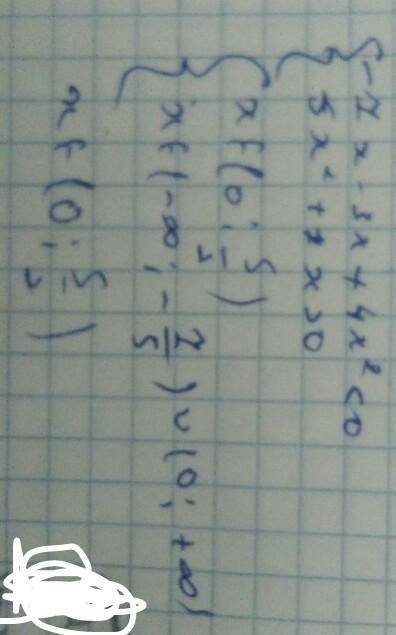 { -7x - 3x + 4x² < 0
5x² + 7x > 0
{ x ∈ (0; 5/2)
x ∈ (-∞; -7/5) ∪ (0; +∞)
x ∈ (0; 5/2)